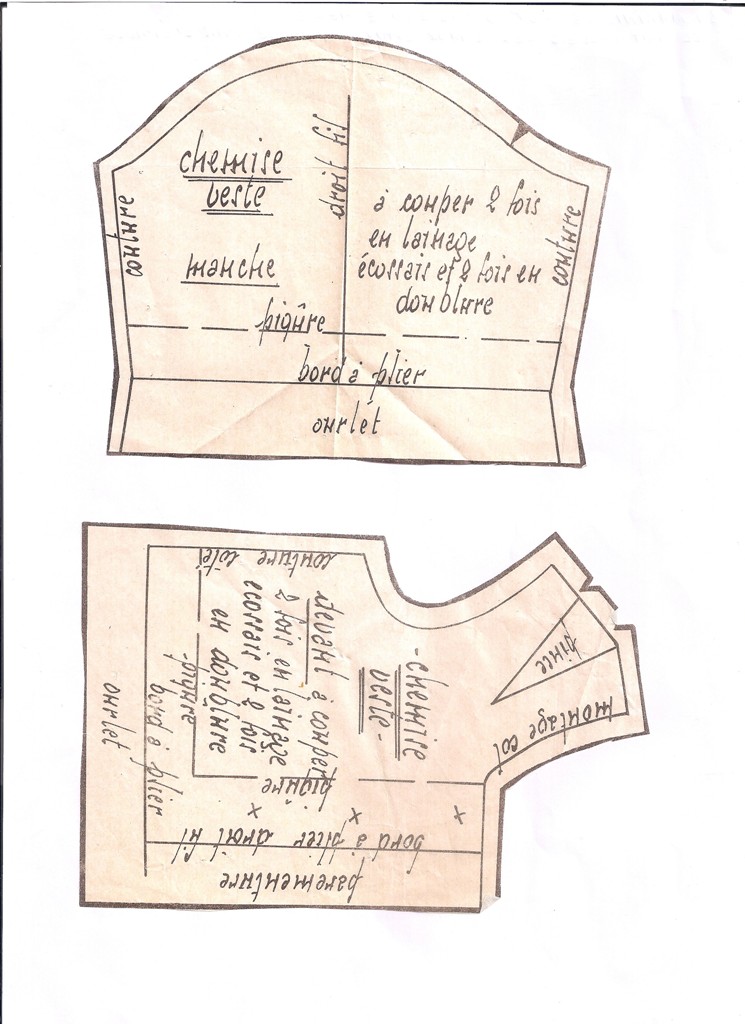 chemise
veste
manche
droit fil
à couper 2 fois
en lainage
écossais et 2 fois en
doublure
couture
couture
piqûre
bord à plier
ourlet
couture côté
devant à couper
2 fois en lainage
ecossais et 2 fois
en doublure
-piqure
bord à plier
ourlet
-chemise
veste-
pince
montage col
piqûre
x x x
bord à plier droit fil
parementure